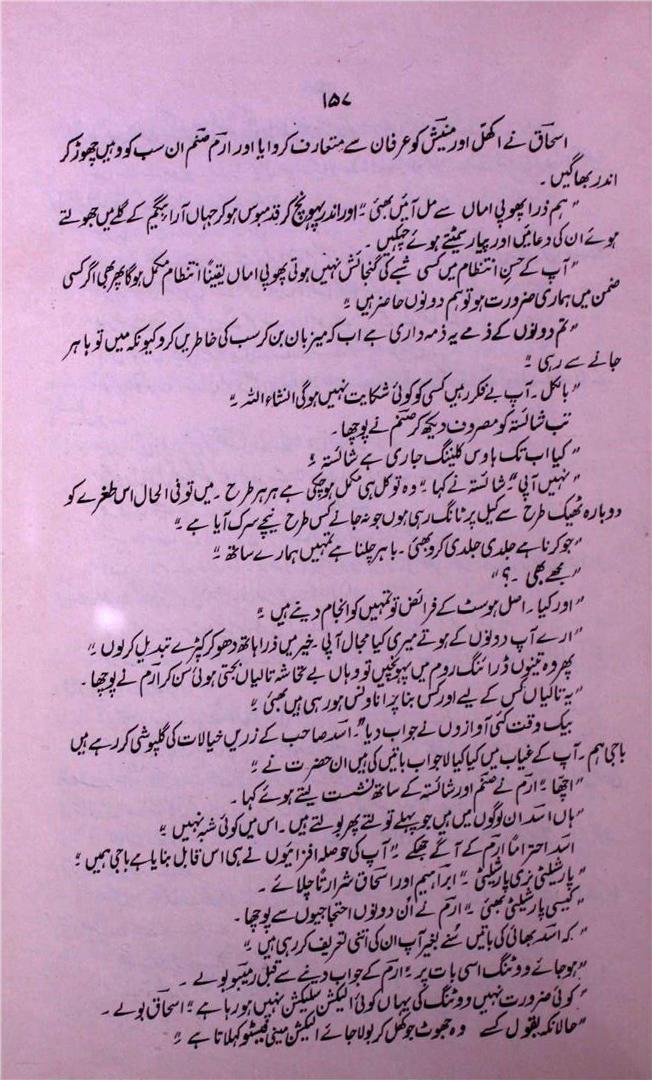 ۱۵۷
اسحاق نے اکھل اور منیش کو عرفان سے متعارف کروایا اور ارم صنم ان سب کو وہیں چھوڑ کر
اندر بھاگیں ۔
"ہم ذرا پھوپی اماں سے مل آئیں بھئی ۔" اور اندر پہونچ کر قدمبوس ہو کر جہاں آرا بیگم کے گلے میں جھولتے
ہوئے ان کی دعائیں اور پیار سمیٹتے ہوئے چہکیں ۔
"آپ کے حسنِ انتظام میں کسی شبے کی گنجائش نہیں ہوتی پھوپی اماں یقیناً انتظام مکمل ہوگا پھر بھی اگر کسی
ضمن میں ہماری ضرورت ہو تو ہم دونوں حاضر ہیں ۔"
"تم دونوں کے ذمے یہ ذمہ داری ہے اب کہ میزبان بن کر سب کی خاطریں کرو کیونکہ میں تو باہر
جانے سے رہی ۔"
"بالکل ۔ آپ بے فکر رہیں کسی کو کوئی شکایت نہیں ہوگی انشاء اللہ ۔"
تب شائستہ کو مصروف دیکھ کر صنم نے پوچھا ۔
"کیا اب تک ہاوس کلیننگ جاری ہے شائستہ ؟"
"نہیں آپی" ۔ شائستہ نے کہا ۔ "وہ تو کل ہی مکمل ہو چکی ہے ہر ہر طرح ۔ میں تو فی الحال اس طغرے کو
دوبارہ ٹھیک طرح سے کیل پر ٹانک رہی ہوں جو نہ جانے کس طرح نیچے سرک آیا ہے ۔"
"جو کرنا ہے جلدی جلدی کرو بھئی ۔ باہر چلنا ہے تمہیں ہمارے ساتھ ۔"
"مجھے بھی ۔ ؟"
"اور کیا ۔ اصل ہوسٹ کے فرائض تو تمہیں کو انجام دینے ہیں ۔"
"ارے آپ دونوں کے ہوتے میری کیا مجال آپی ۔ خیر میں ذرا ہاتھ دھو کر کپڑے تبدیل کرلوں ۔"
پھر وہ تینوں ڈرائنگ روم میں پہونچیں تو وہاں بے تحاشہ تالیاں بجتی ہوئی سن کر ارم نے پوچھا ۔
"یہ تالیاں کس کے لیے اور کس بنا پر اناونس ہو رہی ہیں بھئی ۔"
بیک وقت کئی آوازوں نے جواب دیا "۔ اسد صاحب کے زریں خیالات کی گلپوشی کر رہے ہیں
باجی ہم ۔ آپ کے غیاب میں کیا کیا لاجواب باتیں کی ہیں ان حضرت نے ۔"
"اچھا ۔" ارم نے صنم اور شائستہ کے ساتھ نشست لیتے ہوئے کہا ۔
"ہاں اسد ان لوگوں میں ہیں جو پہلے تولتے پھر بولتے ہیں ۔ اس میں کوئی شبہ نہیں ۔"
اسد احتراماً ارم کے آگے جھکے ۔ "آپ کی حوصلہ افزائیوں نے ہی اس قابل بنایا ہے باجی ہمیں ۔"
"پارشیلٹی نری پارشیلٹی ۔" ابراہیم اور اسحاق شرارتاً چلائے ۔
"کیسی پارشیلٹی بھئی ۔" ارم نے اُن دونوں احتجاجیوں سے پوچھا ۔
"کہ اسد بھائی کی باتیں سُنے بغیر آپ ان کی اتنی تعریف کر رہی ہیں ۔"
"ہو جائے ووٹنگ اسی بات پر ۔" ارم کے جواب دینے سے قبل رمیسو بولے ۔
"کوئی ضرورت نہیں ووٹنگ کی یہاں کوئی الیکشن سلیکشن نہیں ہو رہا ہے ۔" اسحاق بولے ۔
"حالانکہ بقول کسے وہ جھوٹ جو کھل کر بولا جائے الیکشن مینی فیسٹو کہلاتا ہے ۔"